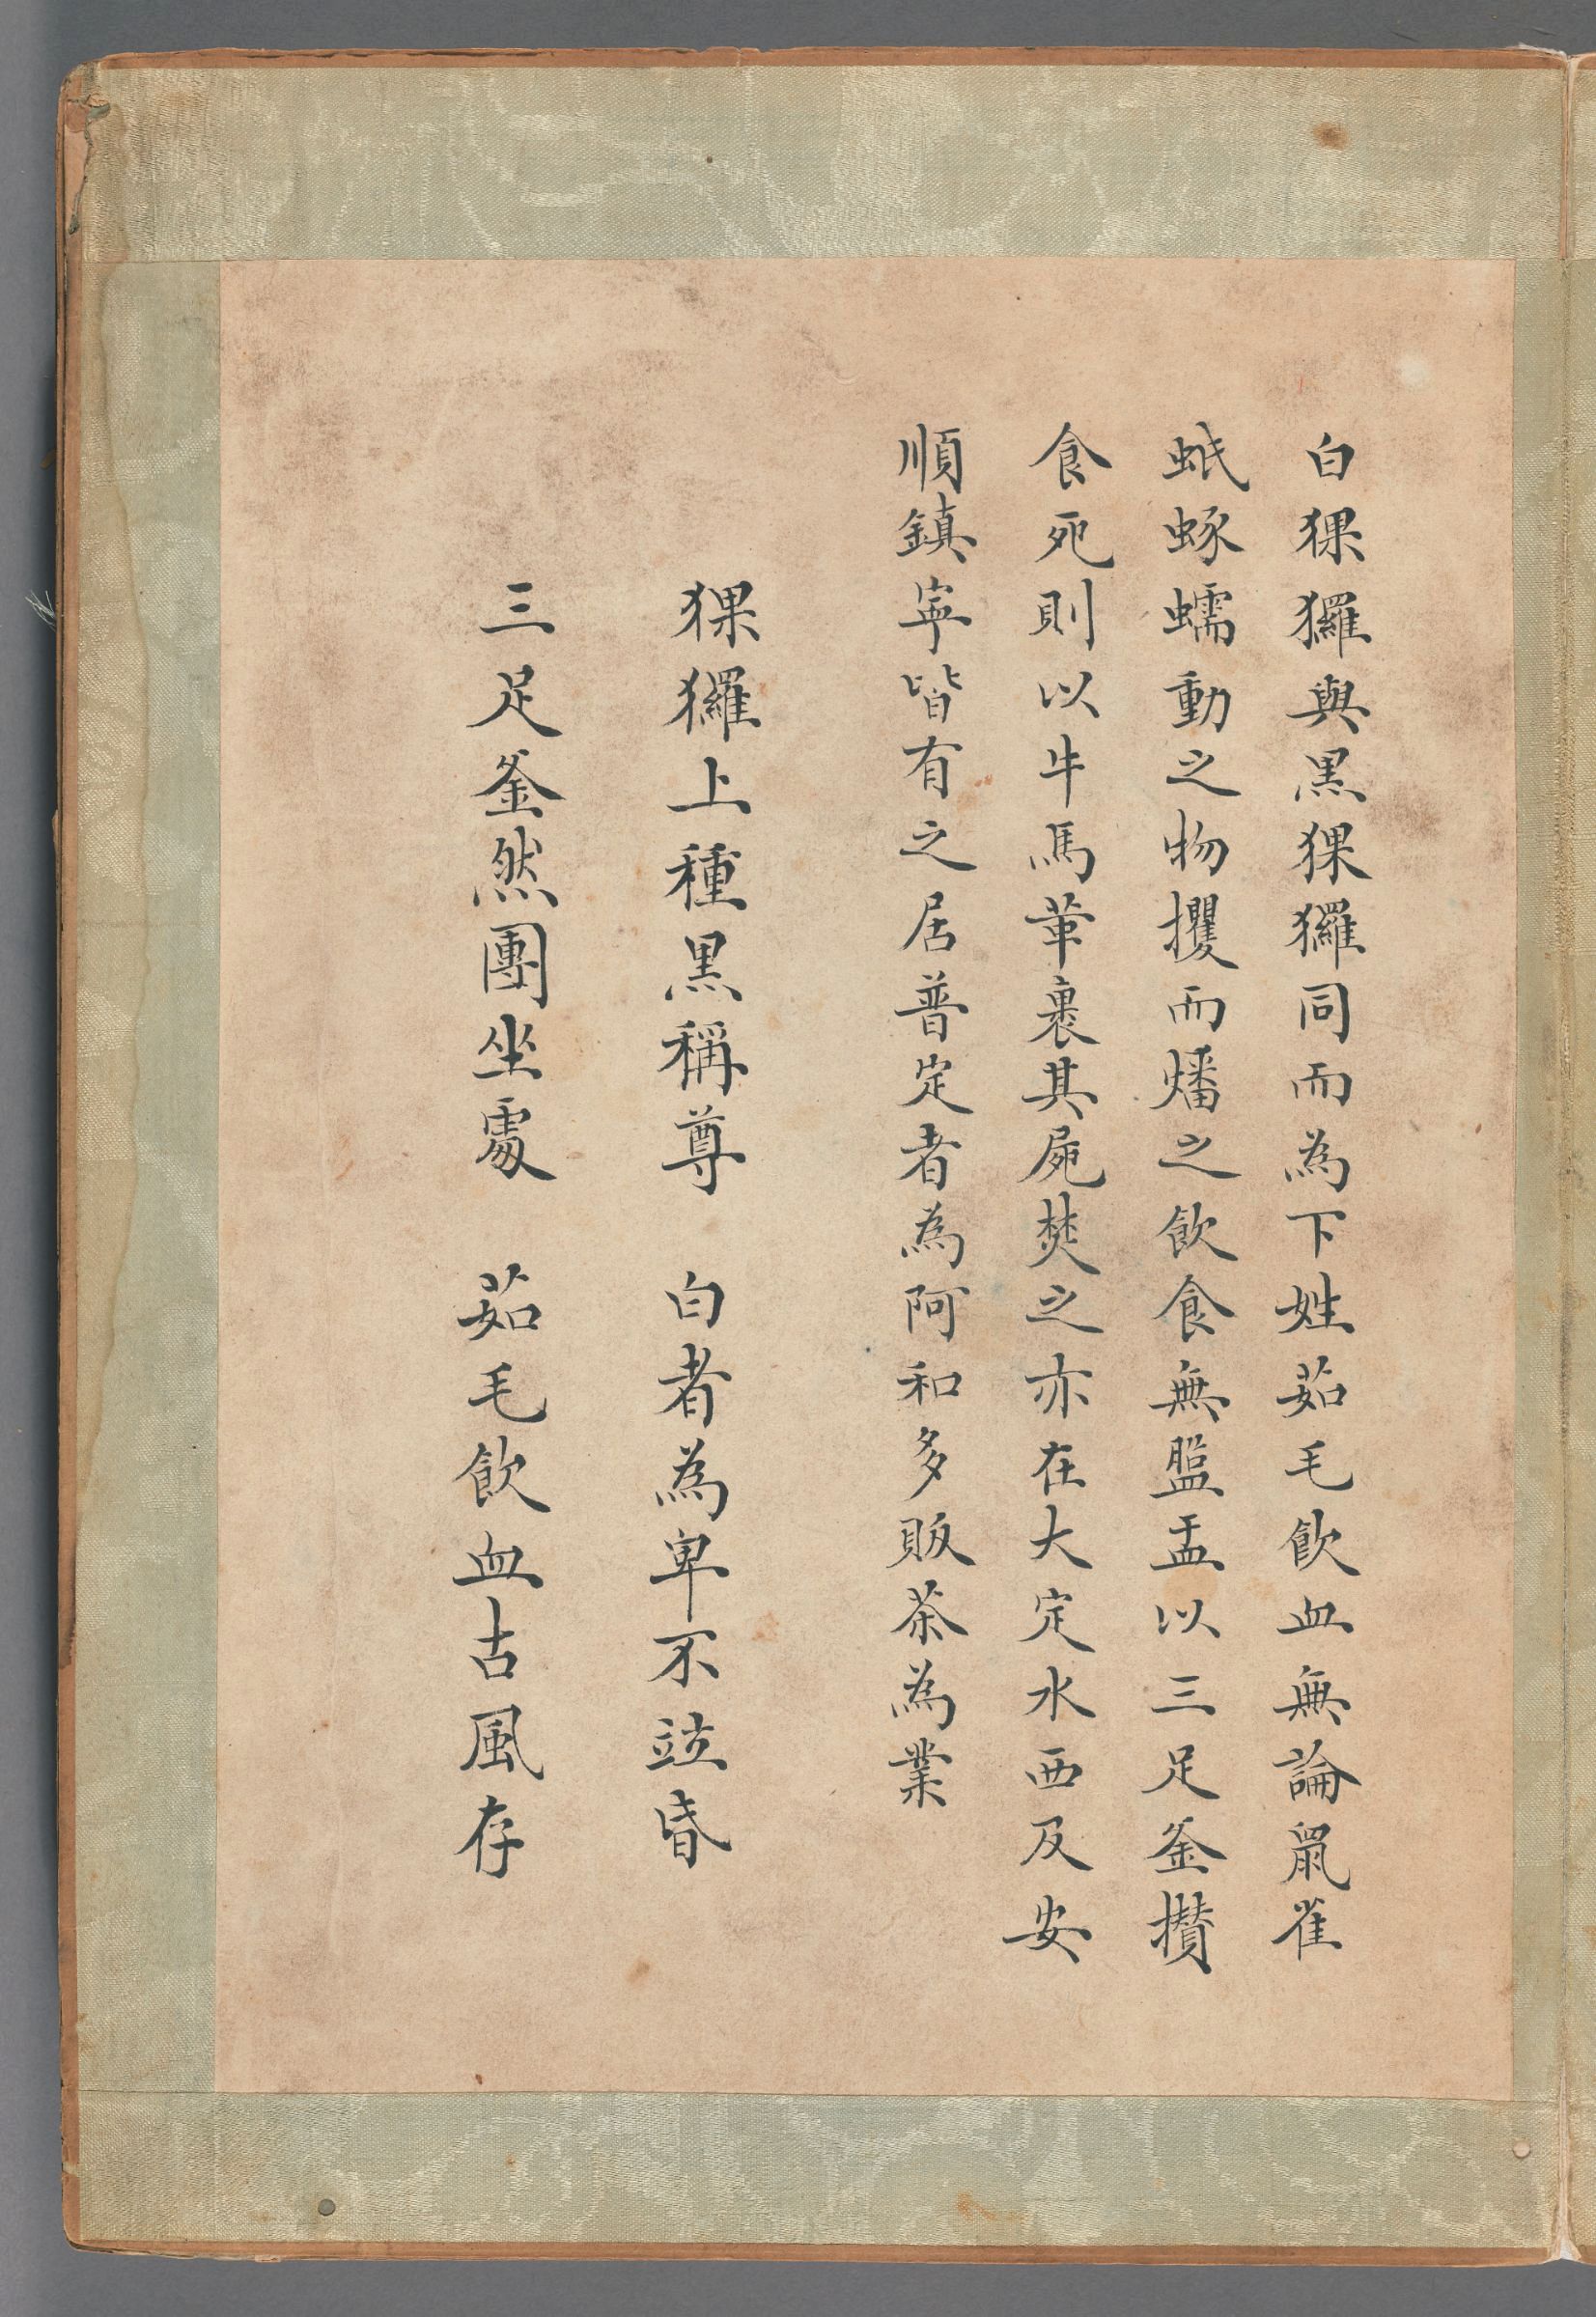 白猓玀與黑猓玀同而為下姓茹毛飲血無論鼠雀
蚔蝝蠕動之物攫而燔之飲食無盤盂以三足釜攢
食死則以牛馬革裹其屍焚之亦在大定水西及安
順鎮寧皆有之居普定者為阿和多販茶為業
猓玀上種黑稱尊　白者為卑不竝昏
三足釜然團坐處　茹毛飲血古風存